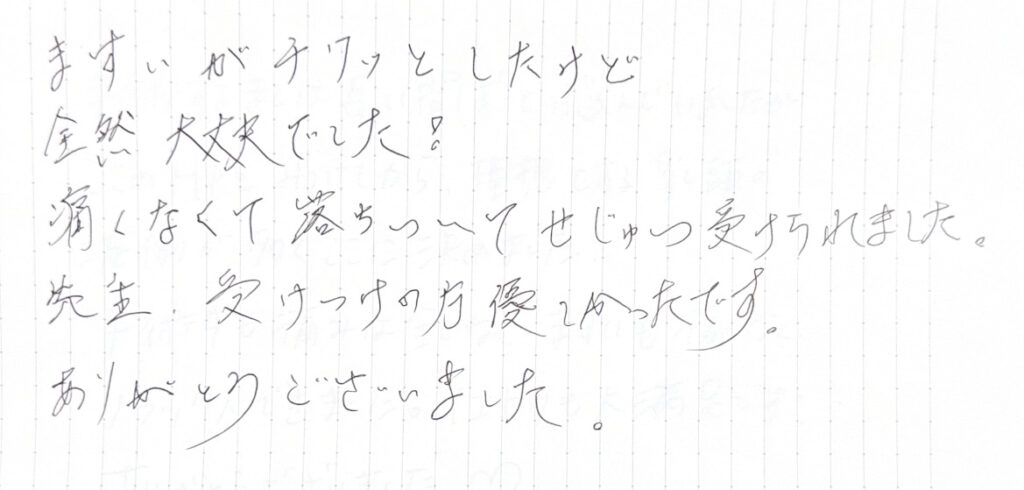 ますいがチクッとしたけど
全然大丈夫でした!
痛くなくて落ちついてせじゅつ受けられました。
先生、受けつけの方優しかったです。
ありがとうございました。